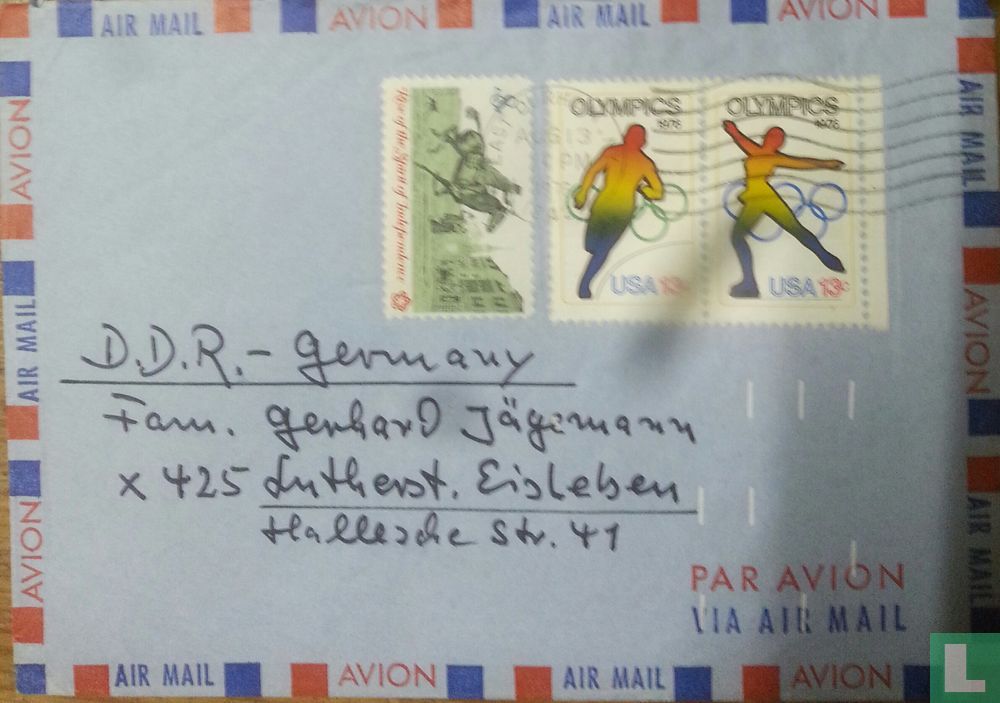 AIR MAIL AVION AIR MAIL AVION
Rise of the Spirit of Independence
OLYMPICS
1976
USA 13c
OLYMPICS
1976
USA 13c
AUG 13
PM
D.D.R. - Germany
Fam. Gerhard Jägemann
x 425 Lutherst. Eisleben
Hallesche Str. 41
PAR AVION
VIA AIR MAIL
AVION
AIR MAIL
AVION
AIR MAIL
AVION
AIR MAIL
AIR MAIL AVION AIR MAIL AVION
L